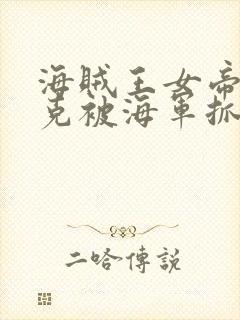 海賊王女帝
克被海軍抓
二哈傳說